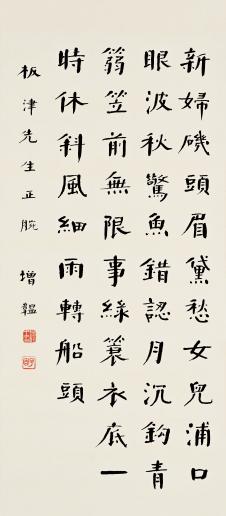 新婦磯頭眉黛愁女兒浦口
眼波秋驚魚錯認月沉鈎青
篛笠前無限事綠簑衣底一
時休斜風細雨轉船頭
板津先生正腕 增韞